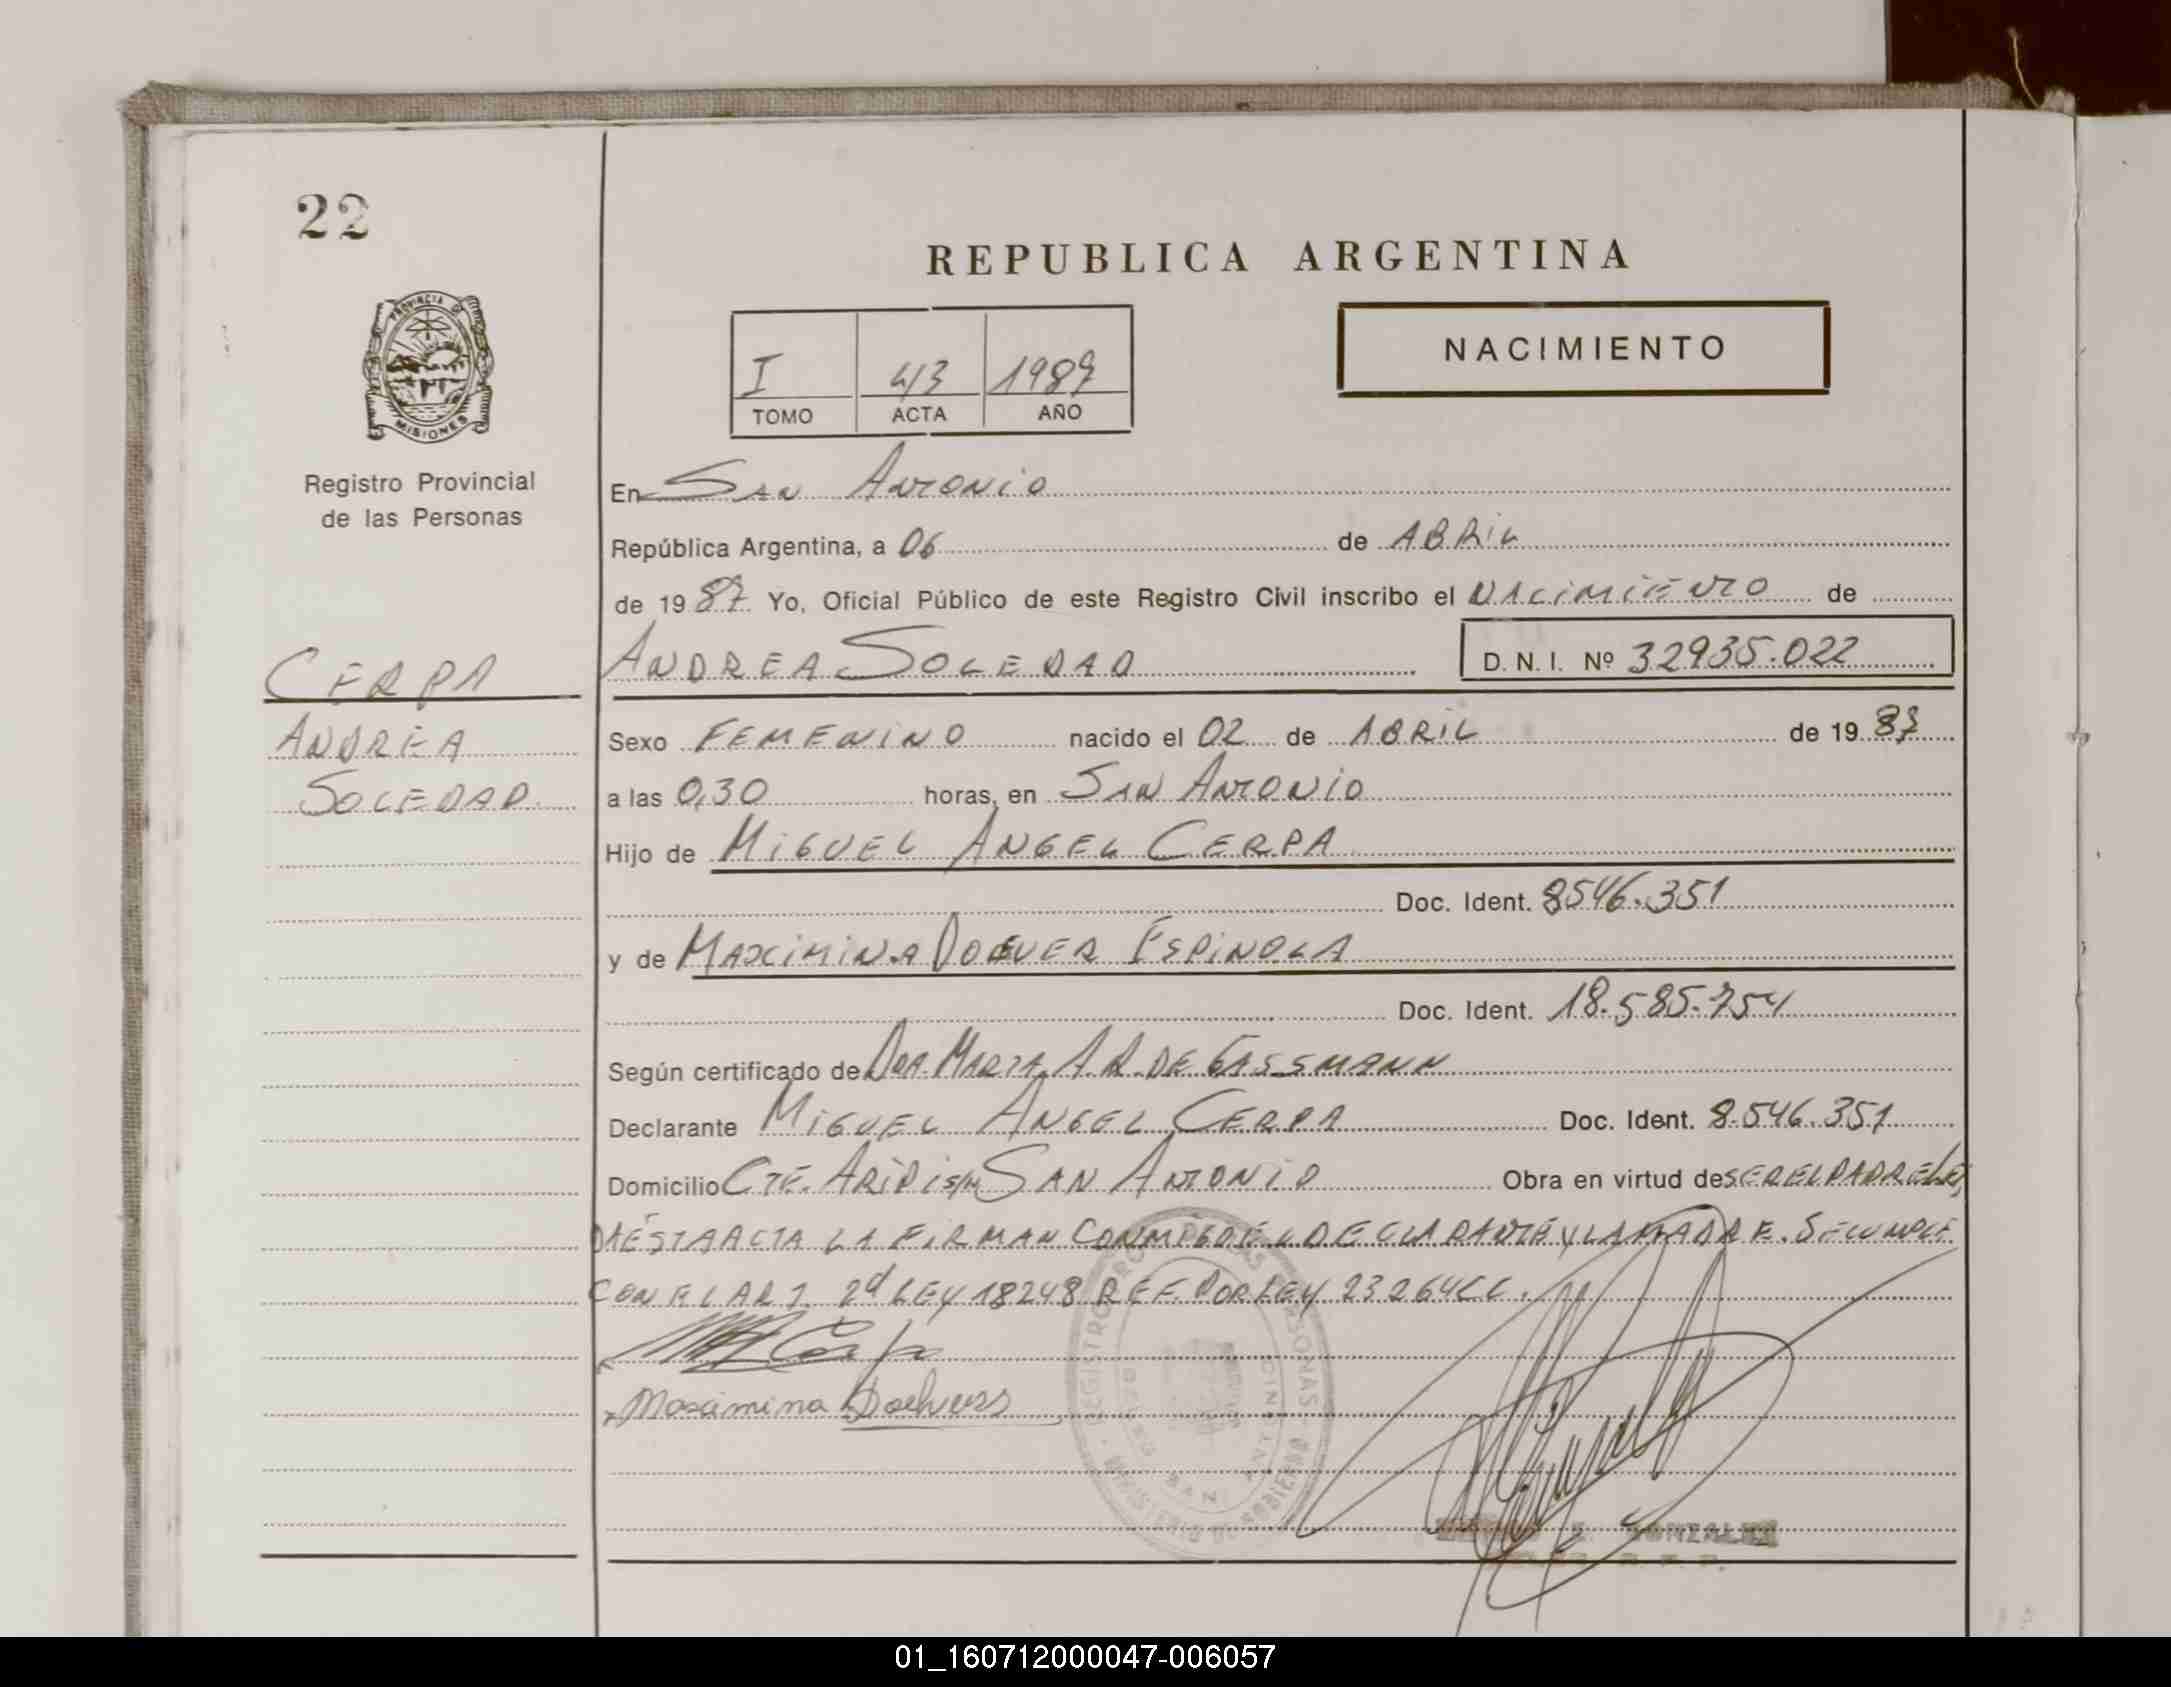 22
REPUBLICA ARGENTINA
NACIMIENTO
I 43 1987
TOMO ACTA AÑO
PROVINCIA DE
MISIONES
Registro Provincial
de las Personas
En SAN ANTONIO
República Argentina, a 06 de ABRIL
de 1987 Yo, Oficial Público de este Registro Civil inscribo el NACIMIENTO de
CERPA
ANDREA SOLEDAD D.N.I. Nº 32935.022
ANDREA
Sexo FEMENINO nacido el 02 de ABRIL de 1987
SOLEDAD
a las 0,30 horas, en SAN ANTONIO
Hijo de MIGUEL ANGEL CERPA
Doc. Ident. 8546.351
y de MAXIMINA ESPINOLA
Doc. Ident. 18.585.754
Según certificado de DRA. MARTA A.R. DE GASSMANN
Declarante MIGUEL ANGEL CERPA Doc. Ident. 8.546.351
Domicilio CTE. ARIPI S/N SAN ANTONIO Obra en virtud de SER EL PADRE LEI
DA ESTA ACTA LA FIRMAN CONMIGO EL DECLARANTE Y LA MADRE. SE CUMPLE
CON EL ART. 2º LEY 18248 REF. POR LEY 23264
Maximina
REGISTRO PERSONAS
MINISTERIO DE GOBIERNO
SAN ANTONIO
E. GONZALEZ
01_160712000047-006057